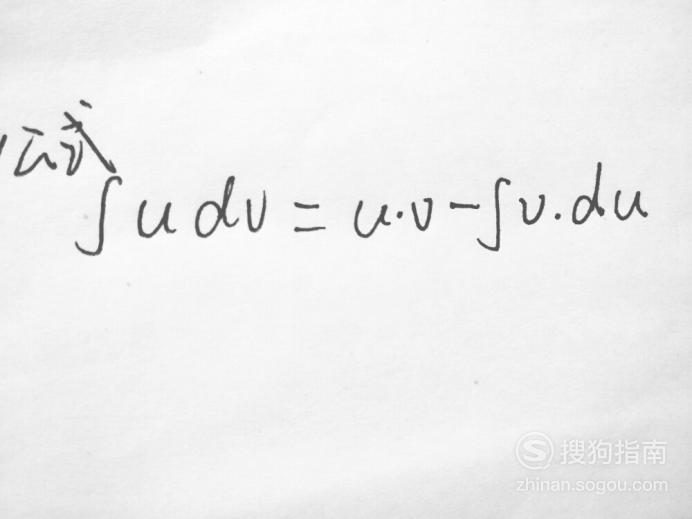 公式
∫u dv = u·v - ∫v.du
搜狗指南
zhinan.sogou.com